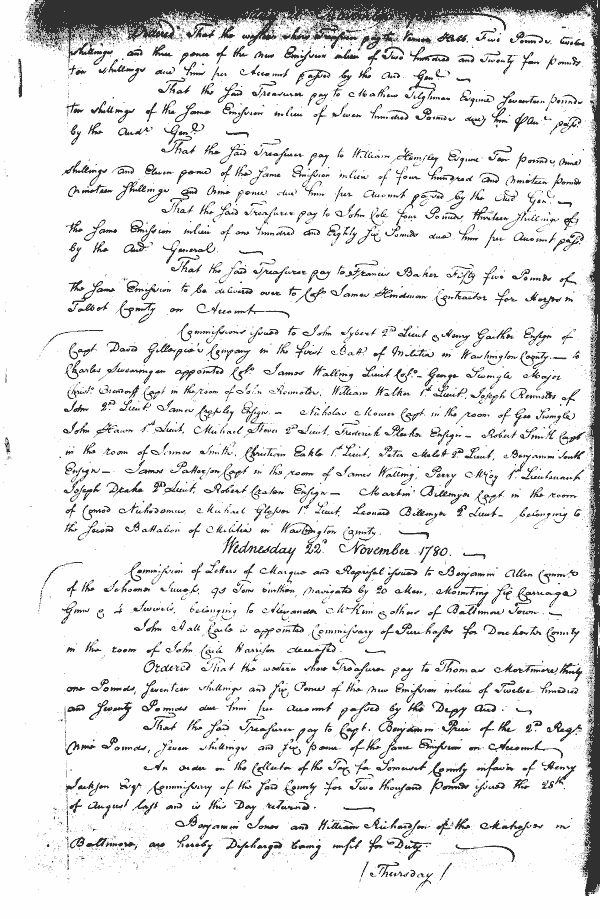 Ordered That the western shore Treasurer pay to James Hall Five Pounds, twelve
shillings and three pence of the new Emission inlieu of Two hundred and Twenty four pounds
ten shillings due him per Account passed by the Aud. Genl.
That the said Treasurer pay to Mathew Tilghman Esquire Seventeen pounds
ten shillings of the same Emission inlieu of Seven hundred Pounds due him passd.
by the Audr. Genl.
That the said Treasurer pay to William Hemsley Esquire Ten pounds, nine
shillings and Eleven pence of the same Emission inlieu of four hundred and nineteen Pounds
nineteen shillings and nine pence due him per Account passed by the Aud Genl.
That the said Treasurer pay to John Cole four Pounds thirteen shillings of
the same Emission inlieu of one hundred and Eighty Six Pounds due him per Account passd
by the Aud General
That the said Treasurer pay to Francis Baker Fifty five Pounds of
the same Emission to be delivered over to Colo. James Hindman Contractor for Horses in
Talbot County on Account
Commissions issued to John Sybert 2d Lieut & Henry Gaither Ensign of
Capt. David Gillespie's Company in the first Batt. of Militia in Washington County. — to
Charles Swearingen appointed Colo. James Walling Lieut Colo. — George Swingle Major
Capt in the room of John Reynolds, William Walker 1st Lieut, Joseph
John 2d. Lieut James Ensign. — Nicholas Mower Capt. in the room of Geo Swingle
John Hawn 1st Lieut, Michael 2d Lieut, Frederick Ensign — Robert Smith Capt
in the room of James Smith, Christian Eakle 1st Lieut, Peter 2d Lieut, Benjamin South
Ensign — James Patterson Capt in the room of James Walling, Perry McCoy 1st Lieutenant
Joseph Drake 2d Lieut, Robert Ensign — Martin Billmyer Capt in the room
of Conrod Nichodemus, Michael Glosser 1st Lieut, Leonard Billmyer 2d Lieut — belonging to
the second Battalion of Militia in Washington County.
Wednesday 22d November 1780.
Commission of Letters of Marque and Reprisal issued to Benjamin Allen Commr.
of the Schooner 95 Tons burthen, navigated by 20 Men, Mounting Six Carriage
Guns & 4 Swivels, belonging to Alexander McKim & others of Baltimore Town. —
John Hall Earle is appointed Commissary of Purchases for Dorchester County
in the room of John Harrison deceased.
Ordered That the western shore Treasurer pay to Thomas Mortimore thirty
one Pounds, Seventeen shillings and Six Pence of the new Emission inlieu of Twelve hundred
and Seventy Pounds due him per Account passed by the Depy Aud.
That the said Treasurer pay to Capt. Benjamin Price of the 2d. Regt.
Nine Pounds, Seven Shillings and six pence of the same Emission on Account
An order on the Collector of the Tax for Somerset County infavor of Henry
Jackson Esqr. Commissary of the said County for Two thousand Pounds issued the 28th
of August last and is this Day returned.
Benjamin Jones and William Richardson of the Matrosses in
Baltimore, are hereby Discharged being unfit for Duty.
/ Thursday /